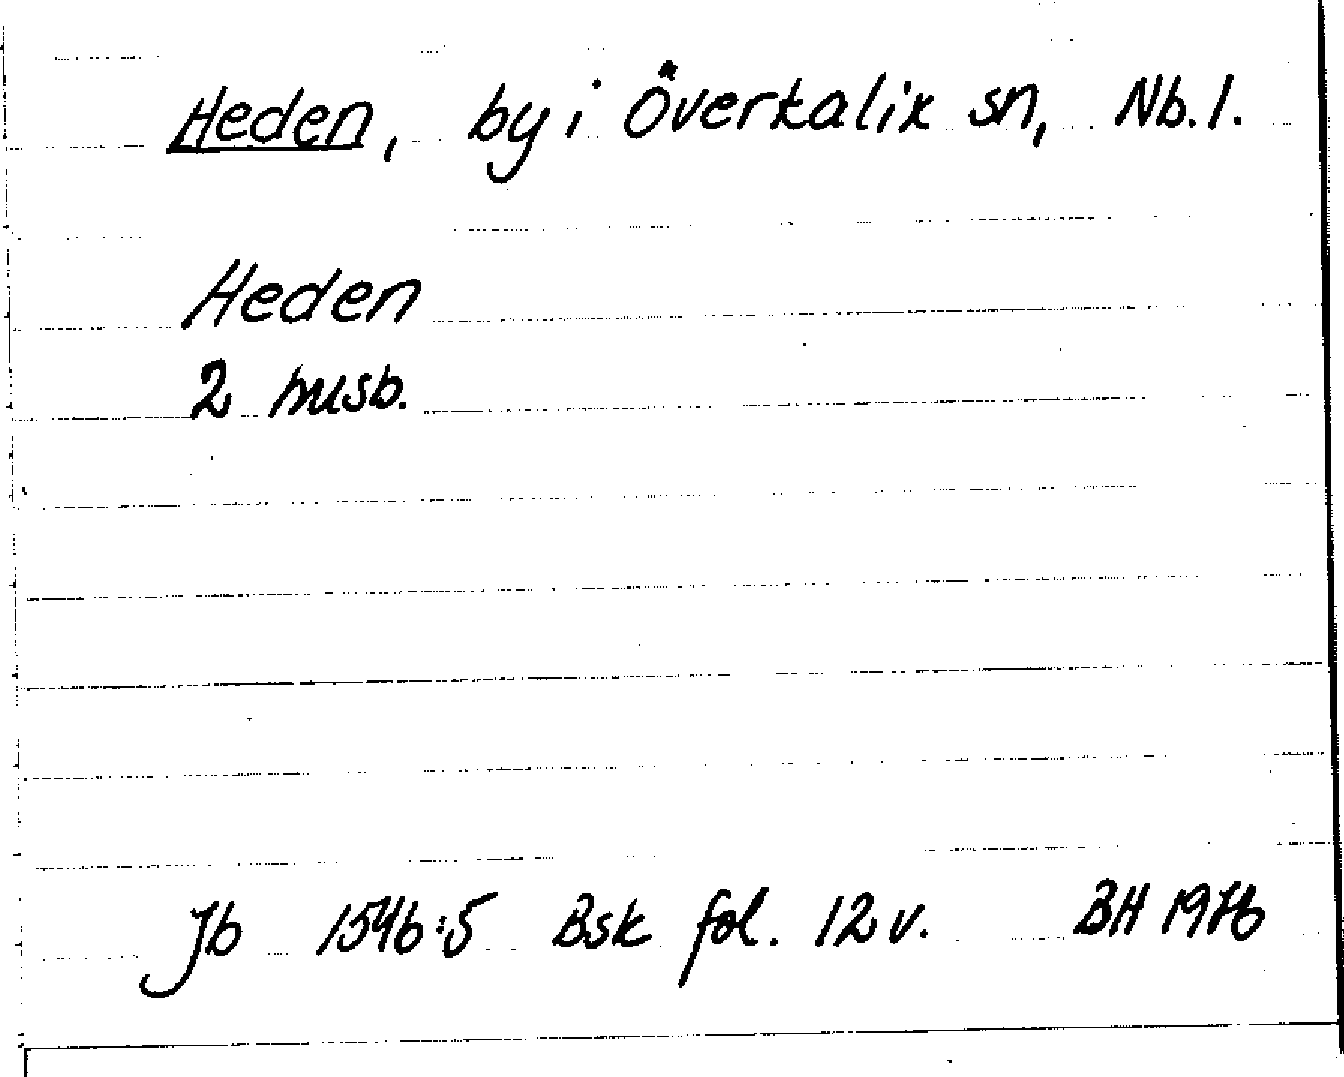 Heden, by i Överkalix sn, Nb. l.
Heden
2 husb.
Jb 1546:5 Bsk fol. 12 v. BH 1976